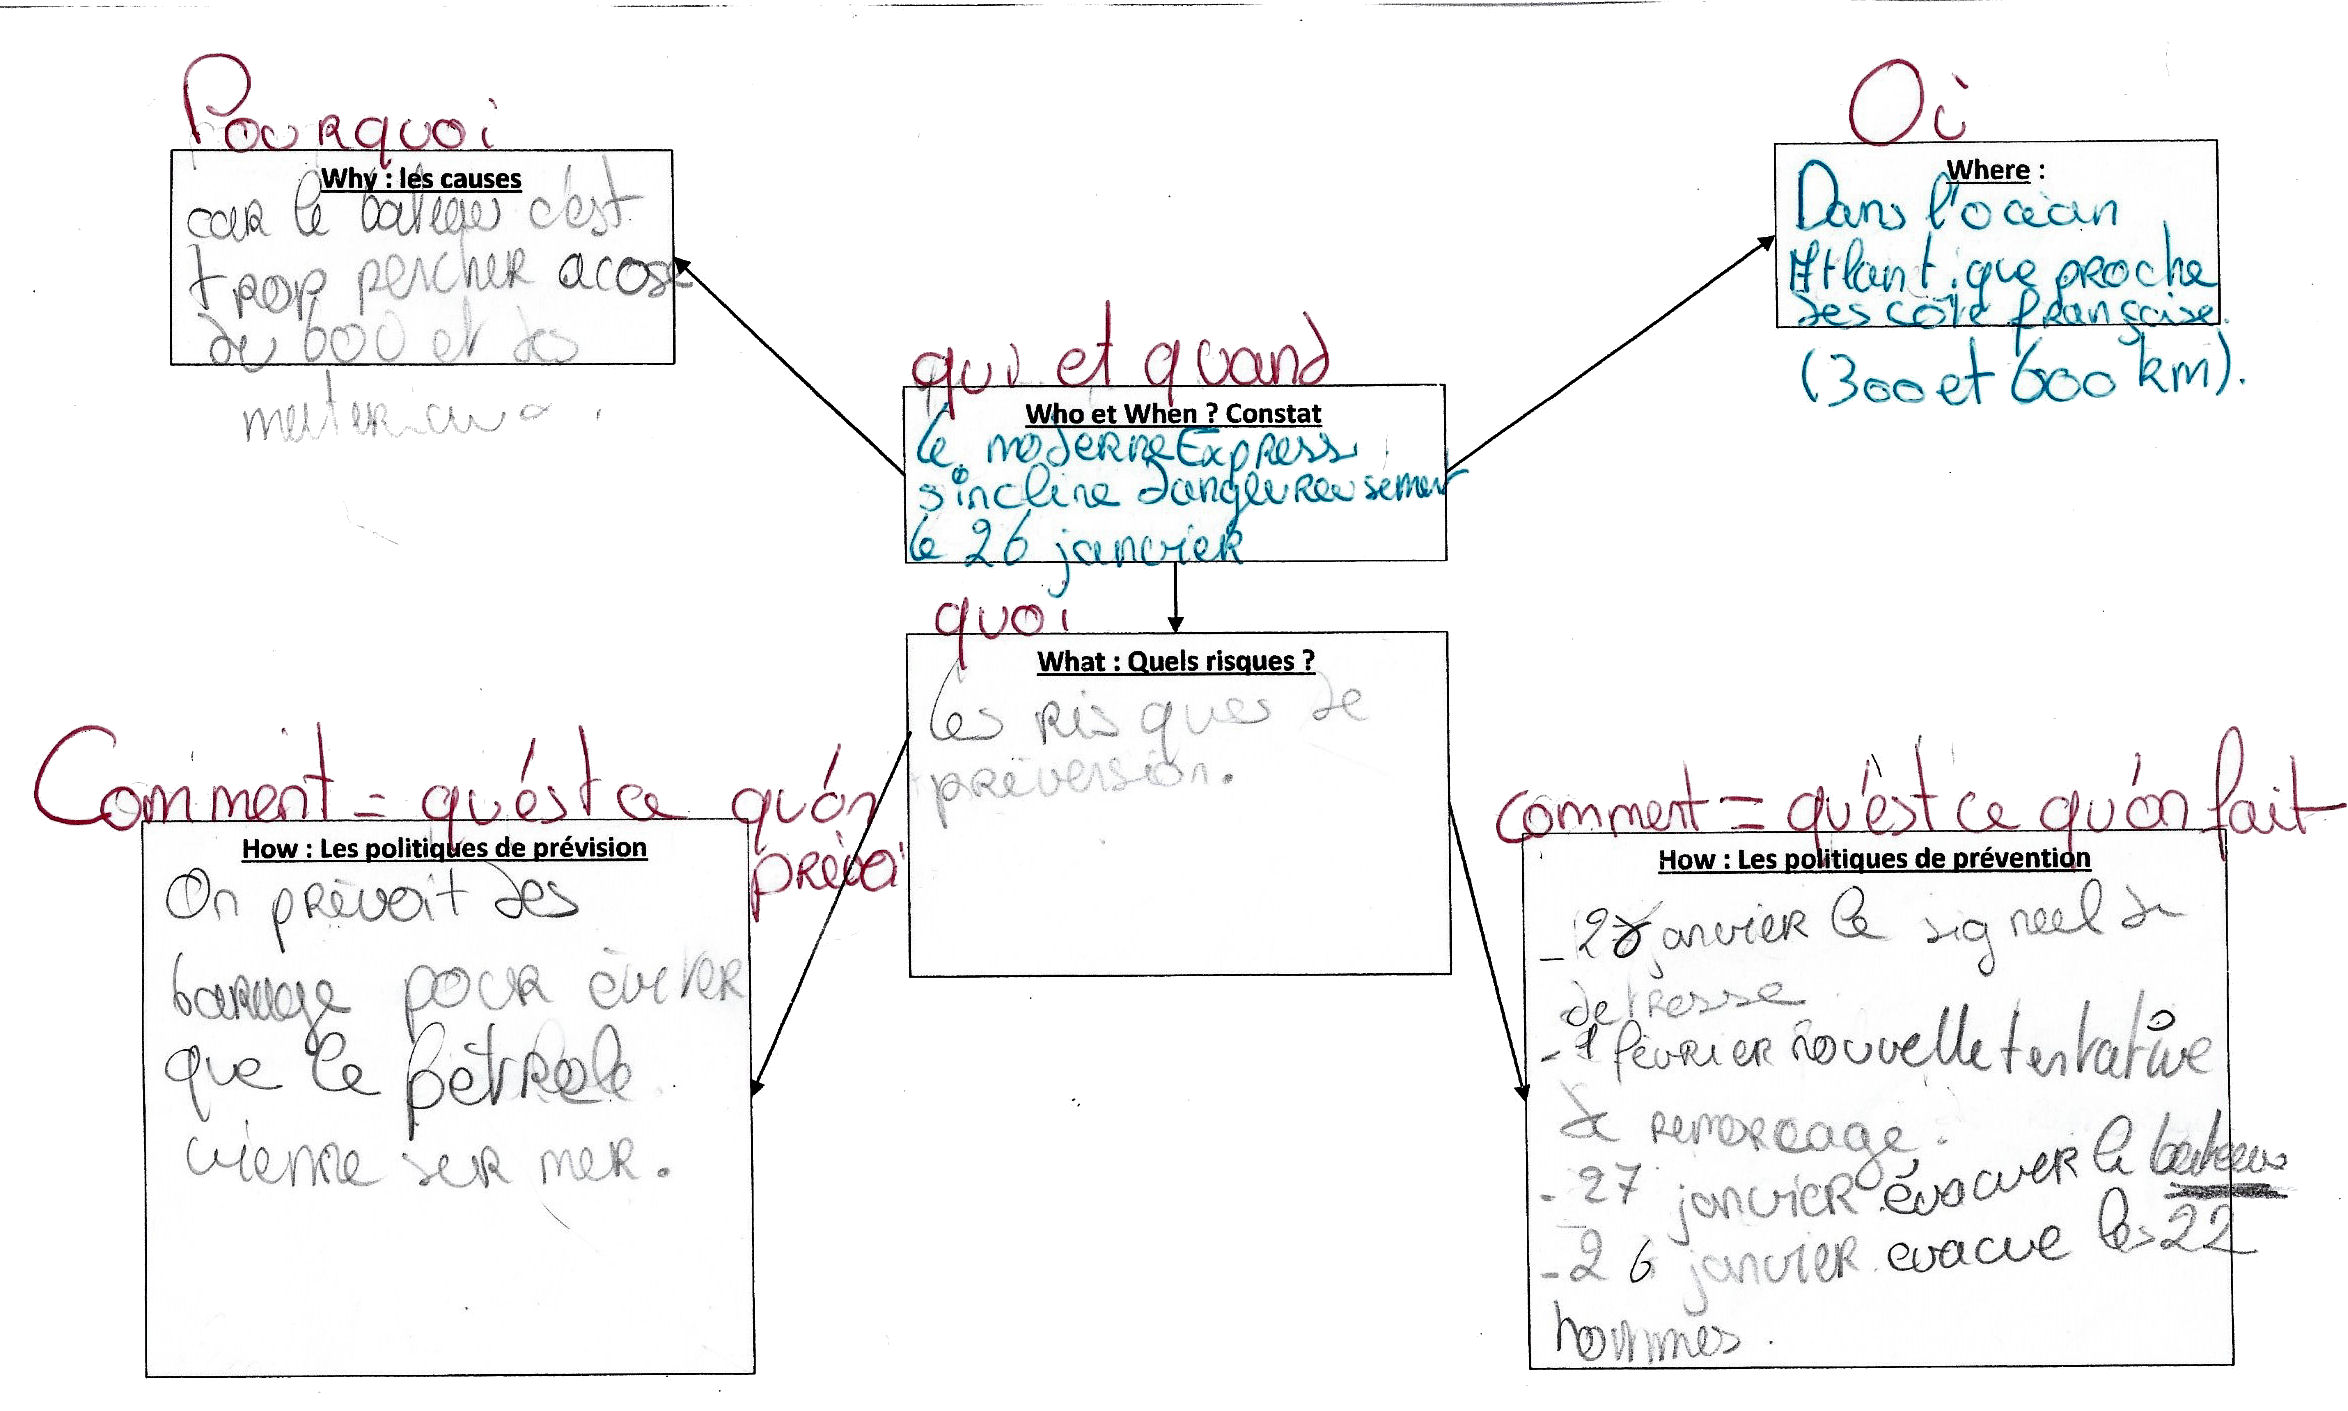 Pourquoi
Why : les causes
car le bateau c'est
trop percher acose
du 600 et des
Où
Where :
Dans l'océan
Atlantique proche
des côte française.
(300 et 600 km).
qui et quand
Who et When ? Constat
le moderne Express
s'incline dangeureusement
le 26 janvier
quoi
What : Quels risques ?
les risques de
préversion.
Comment = qu'est ce qu'on
prévoi
How : Les politiques de prévision
On prévoit des
barage pour éviter
que le pétrole
vienne sur mer.
comment = qu'est ce qu'on fait
How : Les politiques de prévention
- janvier le signeel de
detresse
- 1 février nouvelle tentative
de remorcage.
- 27 janvier évacuer le bateau
- 26 janvier evacue les 22
hommes.